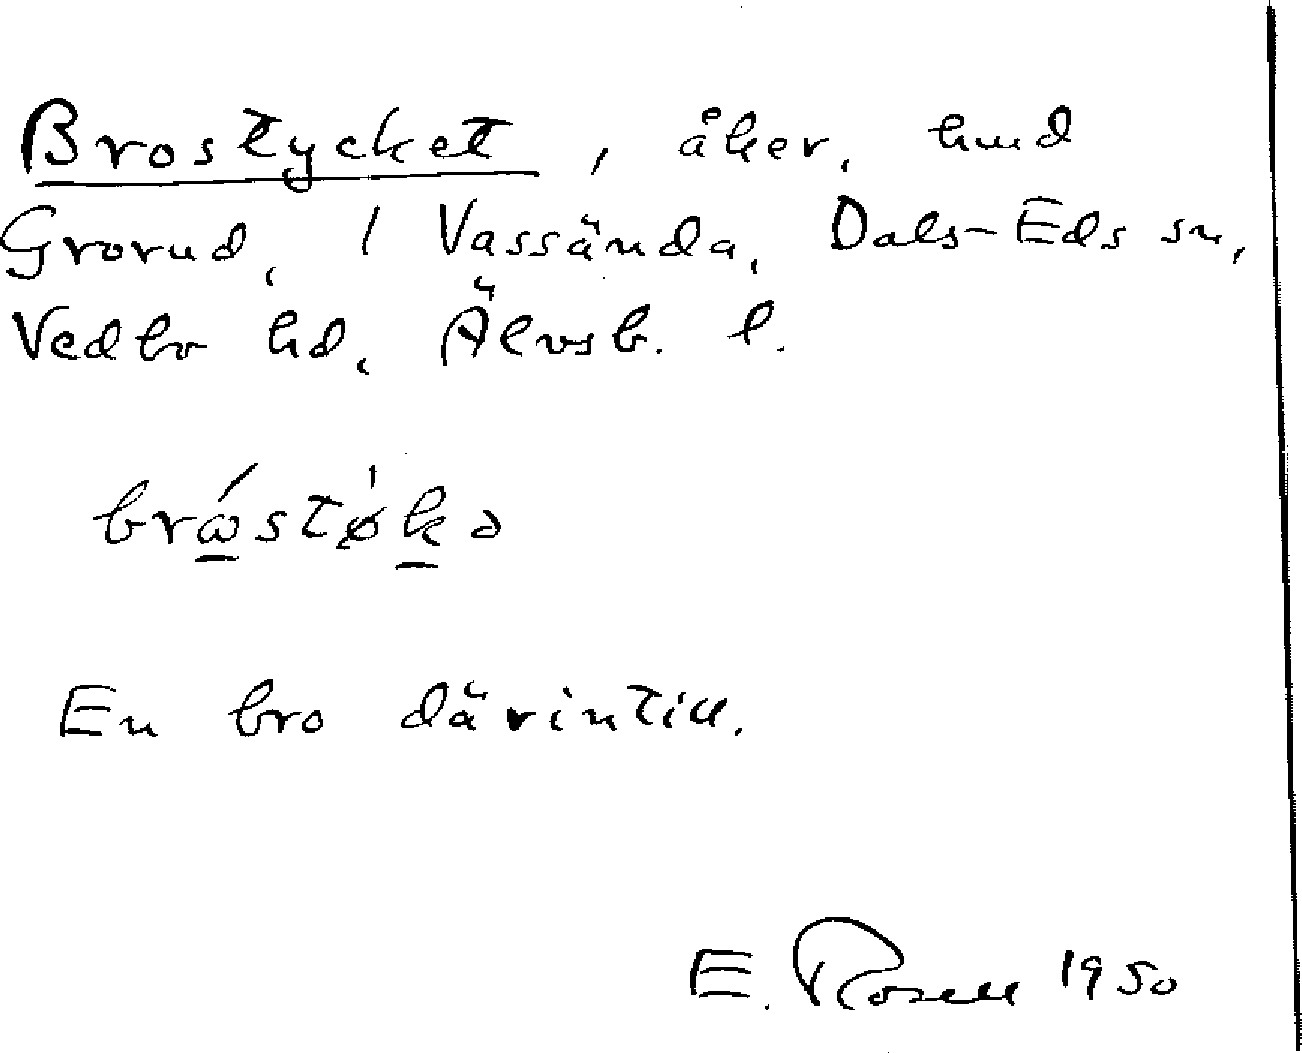 Brostycket, åker, hmd
Grorud, 1 Vassända, Dals-Eds sn,
Vedbo hd, Älvsb. l.
brώstøkə
En bro därintill.
E. Rosell 1950